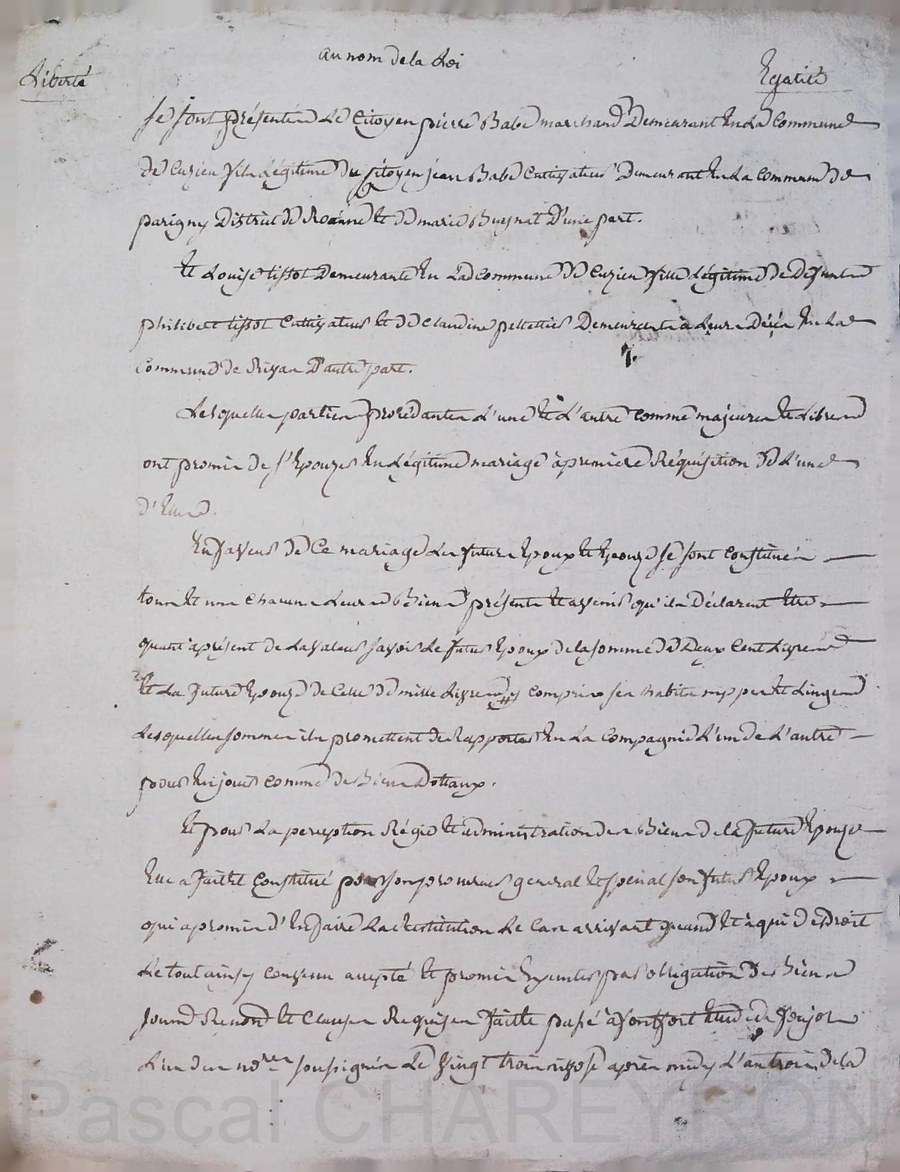 au nom de la Loi
Liberté Egalité
se sont présentés Le Citoyen pierre Babe marchand Demeurant En La Commune
de Cuzieu fils Légitime du Citoyen jean Babe Cultivateur Demeurant En La Commune de
parigny District de Roanne Et de marie D'une part.
Et Louise tissot Demeurante En Ladte Commune de Cuzieu fille Légitime de Defunts
philibert tissot Cultivateur Et de Claudine pelletier Demeurants à Leurs Décès En La
Commune de D'autre part.
Lesquelles parties procedantes L'une Et L'autre comme majeures Et Libres
ont promis de s'Epouzer En Légitime mariage à premiere Réquisition de L'une
d'Elles.
En faveur de Ce mariage Les futurs Epoux Et Epouze se sont constitués
tous Et uns chacuns Leurs Biens présents Et avenir qu'ils Déclarent Etre
quant àprésent de La valeur savoir Le futur Epoux de la somme de Deux Cent Livres
Et La future Epouze de Celle de mille Livres y compris ses habits nippes Et Linges
Lesquelles sommes ils promettent de Rapporter En La Compagnie L'un de L'autre
pour En jouir comme de Biens Dottaux.
Et pour La perception Régie Et administration des Biens de la future Epouze
Elle a fait Et Constitué pour son procureur general Et special son futur Epoux
qui a promis d'En faire La Restitution Le Cas arrivant quand Et à qui De Droit
Le tout ainsy convenu accepté Et promis Executer par obligation De Biens
soumis Renonce Et Clauses Requises faitte passé à fontfort Etude de
L'un des nores soussignés Le Vingt trois nivose après midy L'an trois de la
Pascal CHAREYRON